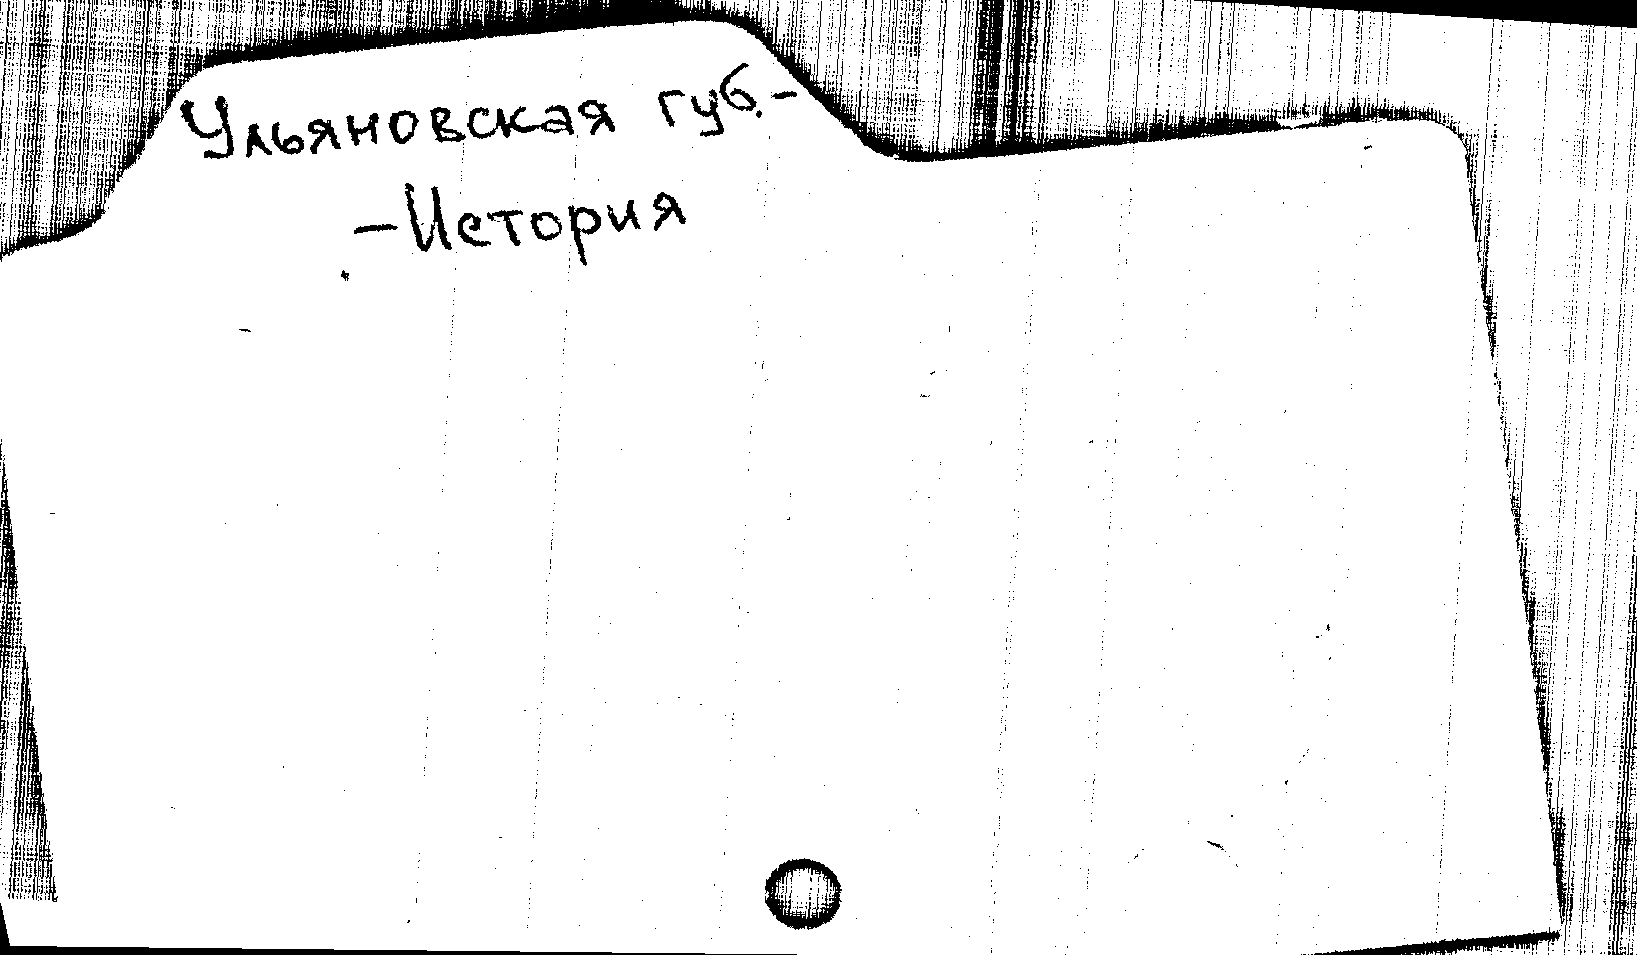 Ульяновская губ.-
-История